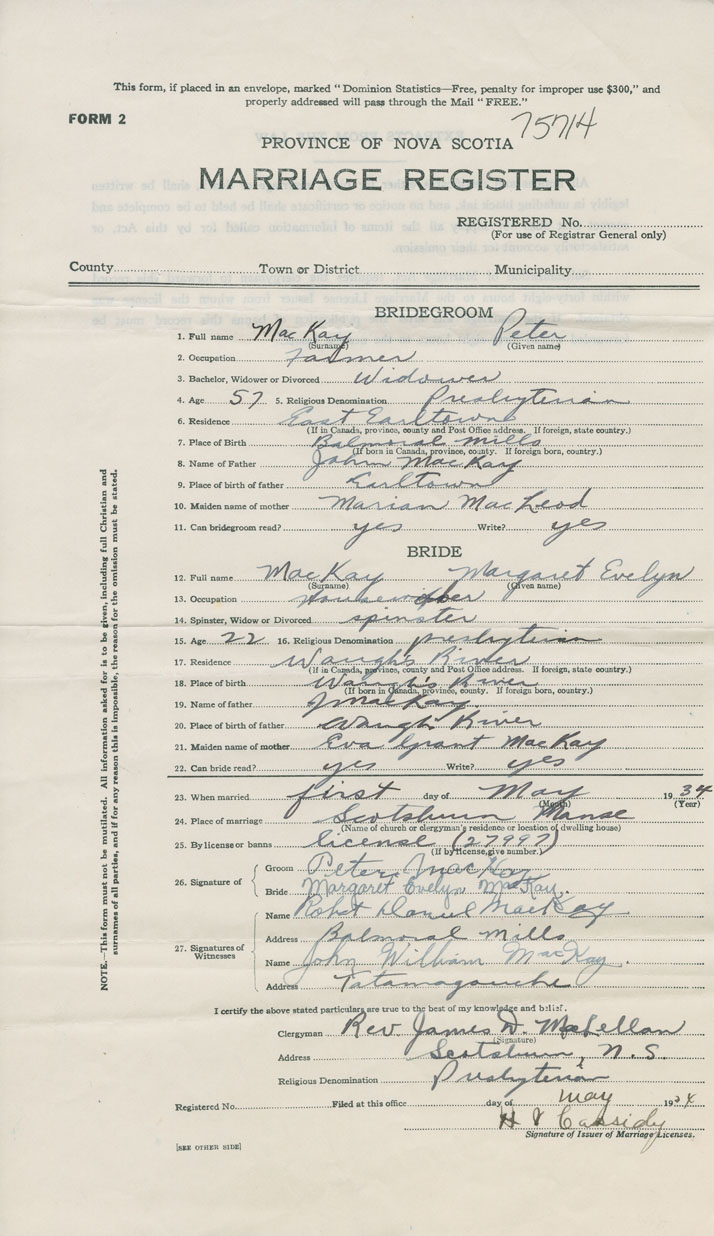 This form, if placed in an envelope, marked "Dominion Statistics—Free, penalty for improper use $300," and
properly addressed will pass through the Mail "FREE."
FORM 2
75714
PROVINCE OF NOVA SCOTIA
MARRIAGE REGISTER
REGISTERED No.
(For use of Registrar General only)
County Town or District Municipality
BRIDEGROOM
1. Full name MacKay Peter
(Surname) (Given name)
2. Occupation Farmer
3. Bachelor, Widower or Divorced Widower
4. Age 57 5. Religious Denomination Presbyterian
6. Residence East Earltown
(If in Canada, province, county and Post Office address. If foreign, state country.)
7. Place of Birth Balmoral Mills
(If born in Canada, province, county. If foreign born, country.)
8. Name of Father John MacKay
9. Place of birth of father Earltown
10. Maiden name of mother Marian MacLeod
11. Can bridegroom read? yes Write? yes
BRIDE
12. Full name MacKay Margaret Evelyn
(Surname) (Given name)
13. Occupation
14. Spinster, Widow or Divorced spinster
15. Age 22 16. Religious Denomination presbyterian
17. Residence Waugh's River
(If in Canada, province, county and Post Office address. If foreign, state country.)
18. Place of birth Waugh's River
(If born in Canada, province, county. If foreign born, country.)
19. Name of father J MacKay
20. Place of birth of father Waugh's River
21. Maiden name of mother Eva Grant MacKay
22. Can bride read? yes Write? yes
23. When married first day of May 1934
(Month) (Year)
24. Place of marriage Scotsburn Manse
(Name of church or clergyman's residence or location of dwelling house)
25. By license or banns license (27997)
(If by license, give number.)
26. Signature of Groom Peter MacKay
Bride Margaret Evelyn MacKay.
27. Signatures of Witnesses
Name Robert Daniel MacKay
Address Balmoral Mills
Name John William MacKay.
Address Tatamagouche
I certify the above stated particulars are true to the best of my knowledge and belief.
Clergyman Rev. James D. McLellan
(Signature)
Address Scotsburn, N.S.
Religious Denomination Presbyterian
Registered No. Filed at this office day of May 1934
Cassidy
Signature of Issuer of Marriage Licenses.
[SEE OTHER SIDE]
NOTE.—This form must not be mutilated. All information asked for is to be given, including full Christian and
surnames of all parties, and if for any reason this is impossible, the reason for the omission must be stated.